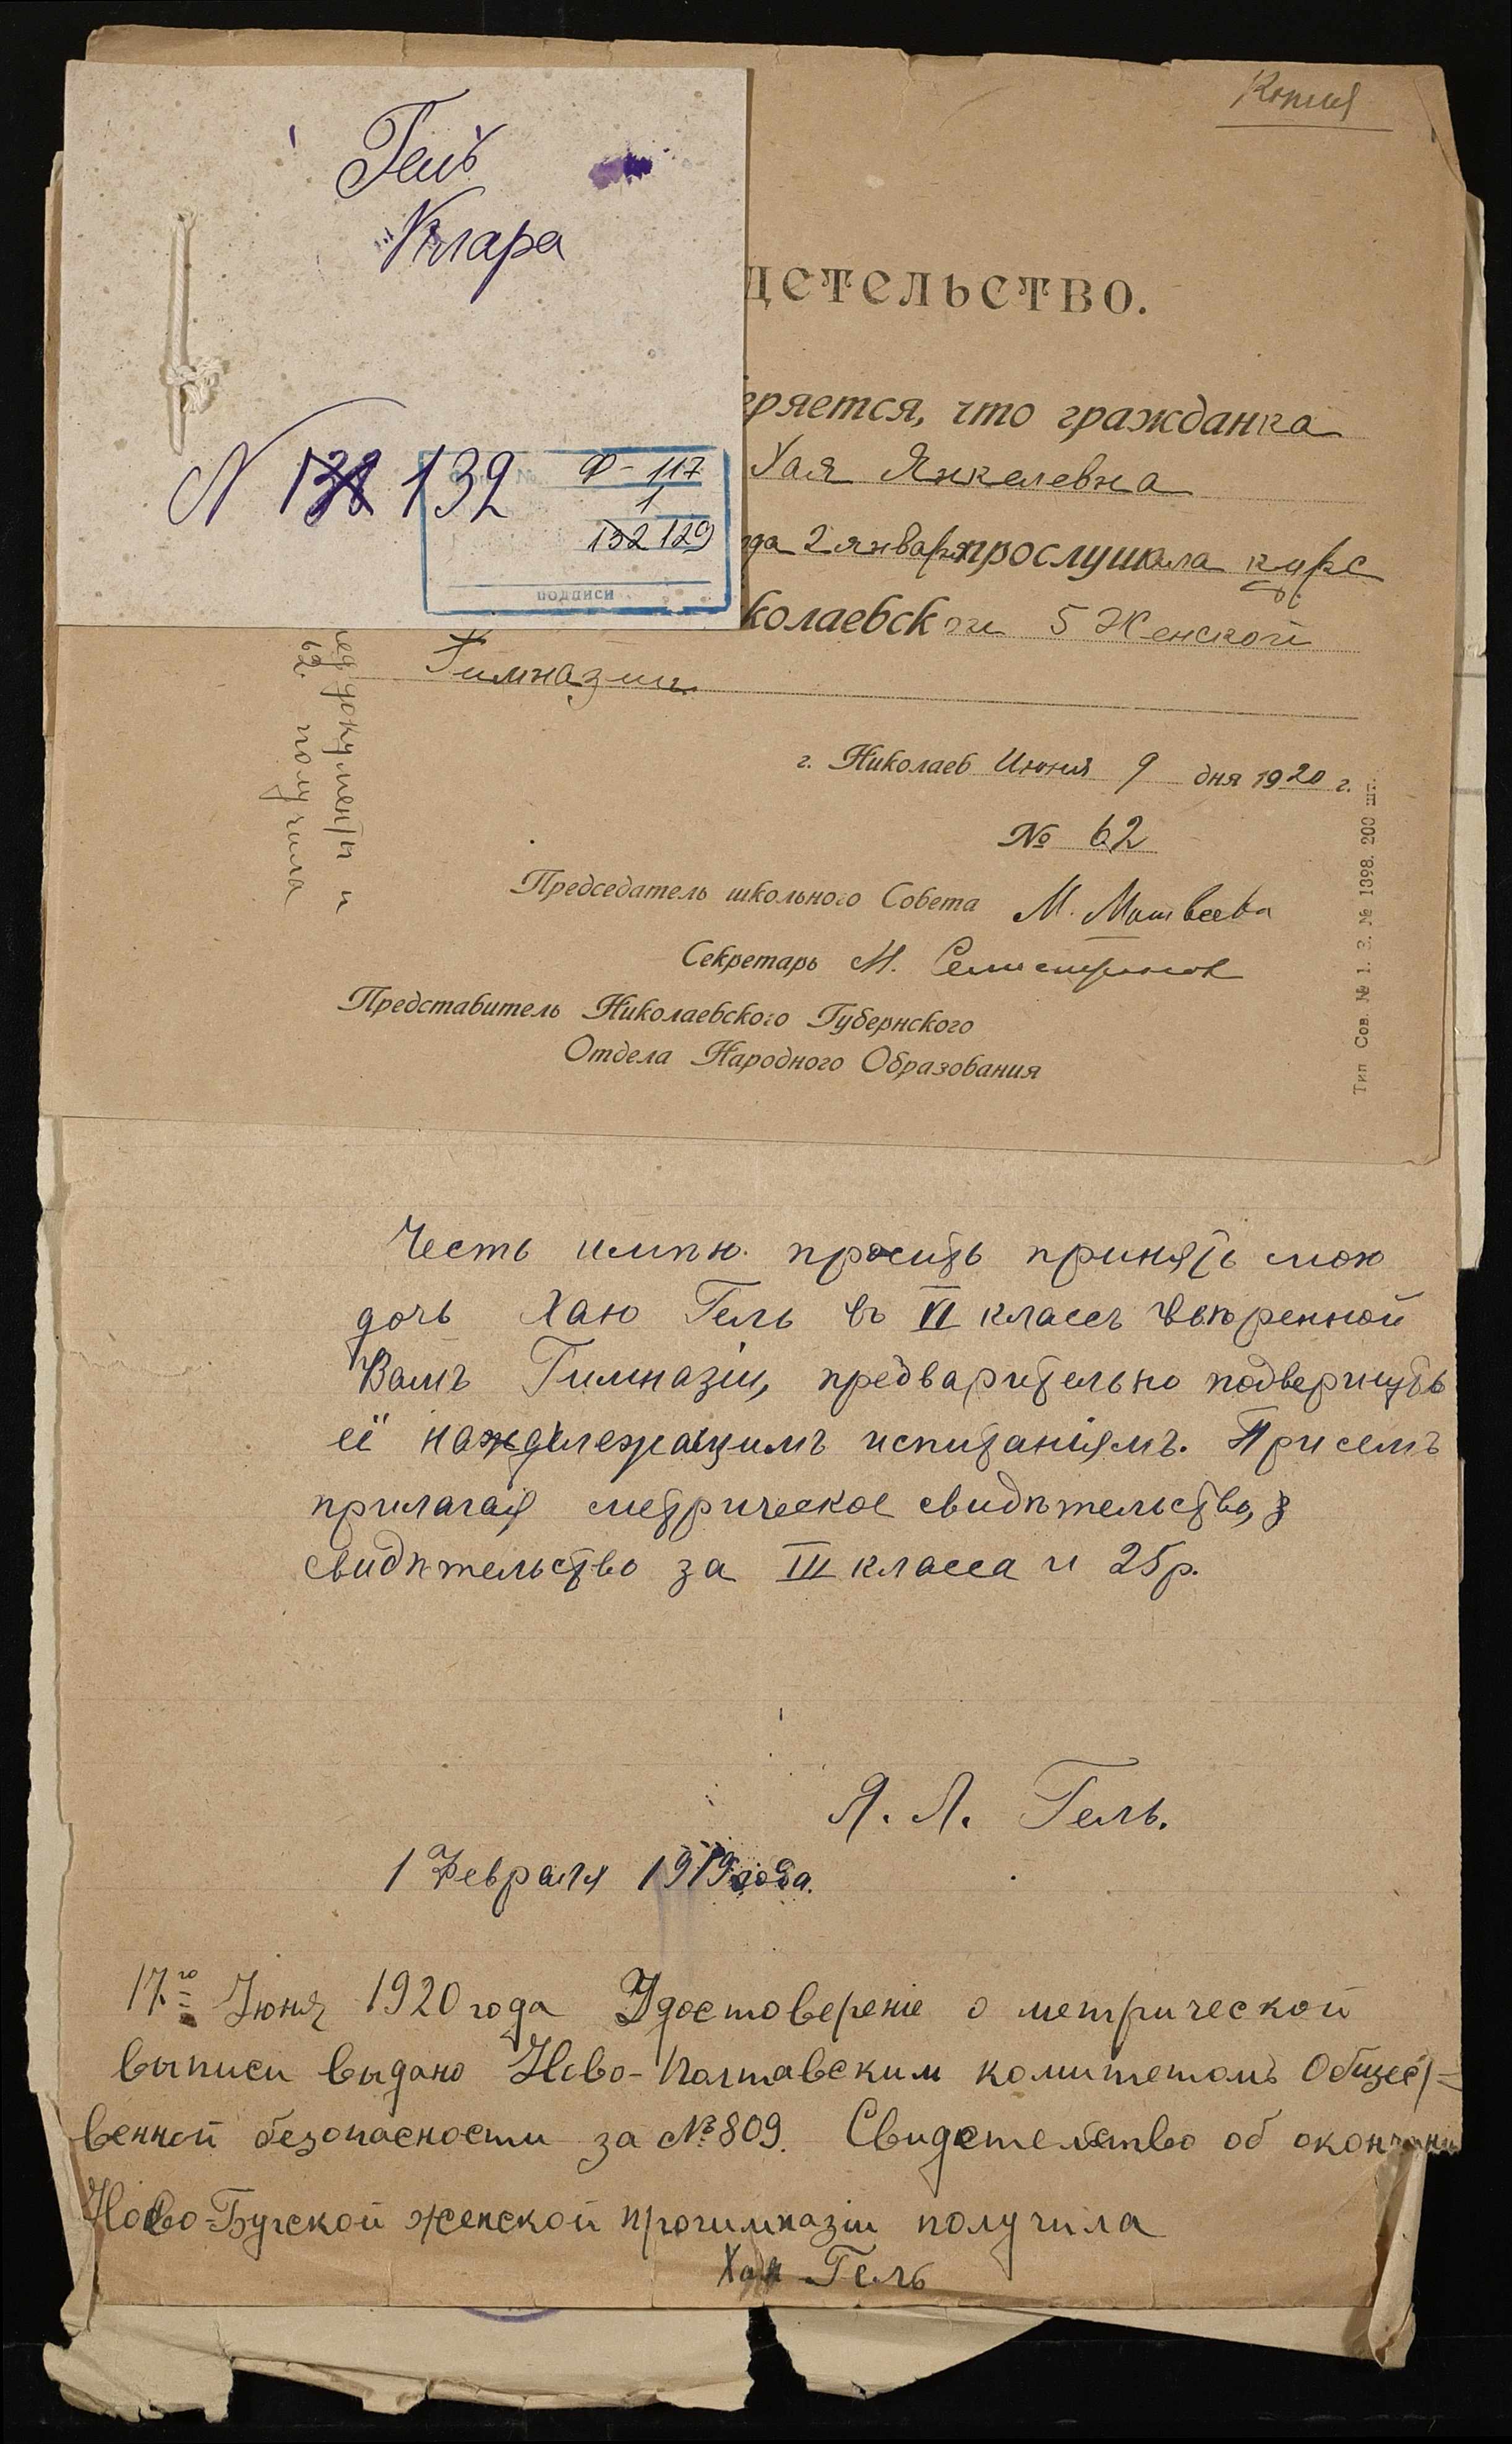 Гель
Клара
N 132
Ф-117
1
132 129
подписи
Копия
детельство.
еряется, что гражданка
Хая Янкелевна
да 2 января прослушала курс
колаевской 5 Женской
Гимназии.
г. Николаев Июня 9 дня 1920 г.
№ 62
Председатель школьного Совета М. Матвеева
Секретарь М.
Представитель Николаевского Губернского
Отдела Народного Образования
Тип Сов. № 1. З. № 1398. 200 шт.
документы и
62. получила
Честь имѣю просить принять мою
дочь Хаю Гель въ VI классъ ввѣренной
Вамъ Гимназіи, предварительно подвергнуть
её надлежащимъ испытаніямъ. При семъ
прилагая метрическое свидѣтельство,
свидѣтельство за III класса и 25 р.
Я. Л. Гель.
1 Февраля 1919 года.
17го Июня 1920 года Удостоверение о метрической
выписи выдано Ново-Полтавским комитетомъ Общест-
венной безопасности за № 809. Свидетельство об окончании
Ново-Бугской женской прогимназіи получила
Хая Гель